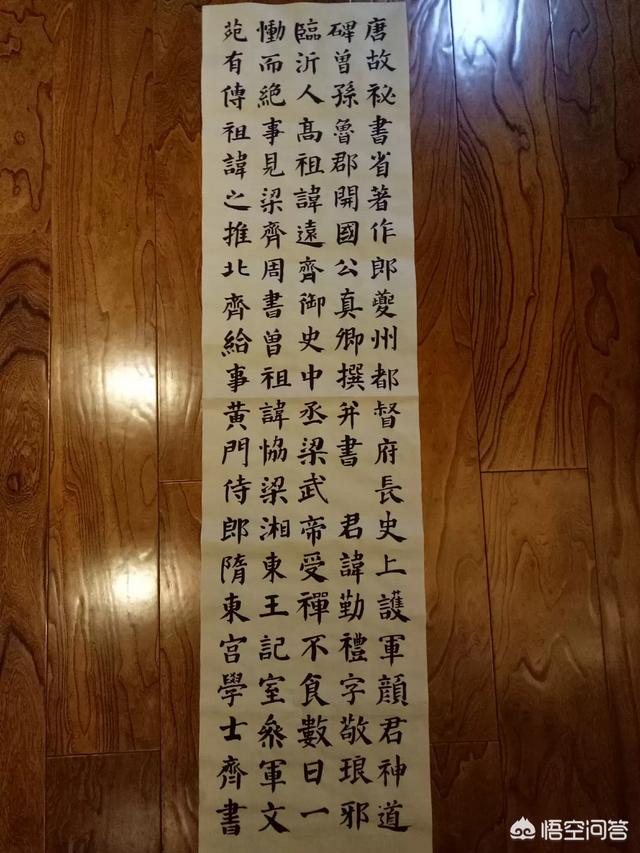 唐故祕書省著作郎夔州都督府長史上護軍顔君神道
碑曾孫魯郡開國公真卿撰并書 君諱勤禮字敬琅邪
臨沂人高祖諱遠齊御史中丞梁武帝受禪不食數日一
慟而絶事見梁齊周書曾祖諱恊梁湘東王記室叅軍文
苑有傳祖諱之推北齊給事黄門侍郎隋東宫學士齊書
悟空问答